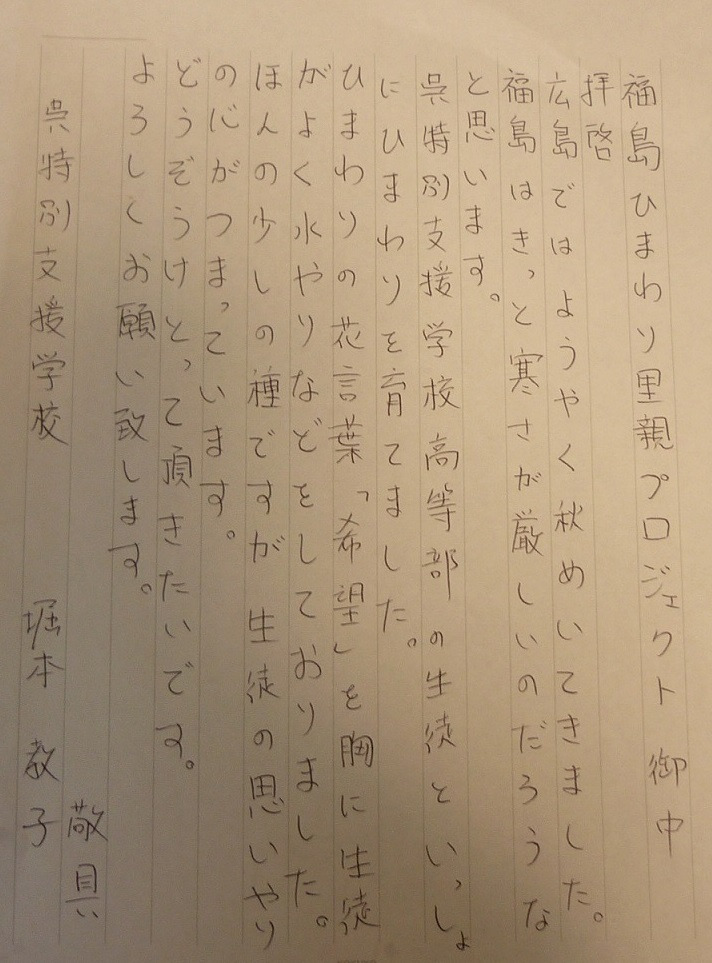 福島ひまわり里親プロジェクト 御中
拝啓
広島ではようやく秋めいてきました。
福島はきっと寒さが厳しいのだろうな
と思います。
呉特別支援学校高等部の生徒といっしょ
にひまわりを育てました。
ひまわりの花言葉「希望」を胸に生徒
がよく水やりなどをしておりました。
ほんの少しの種ですが 生徒の思いやり
の心がつまっています。
どうぞうけとって頂きたいです。
よろしくお願い致します。
敬具
呉特別支援学校 堀本 教子